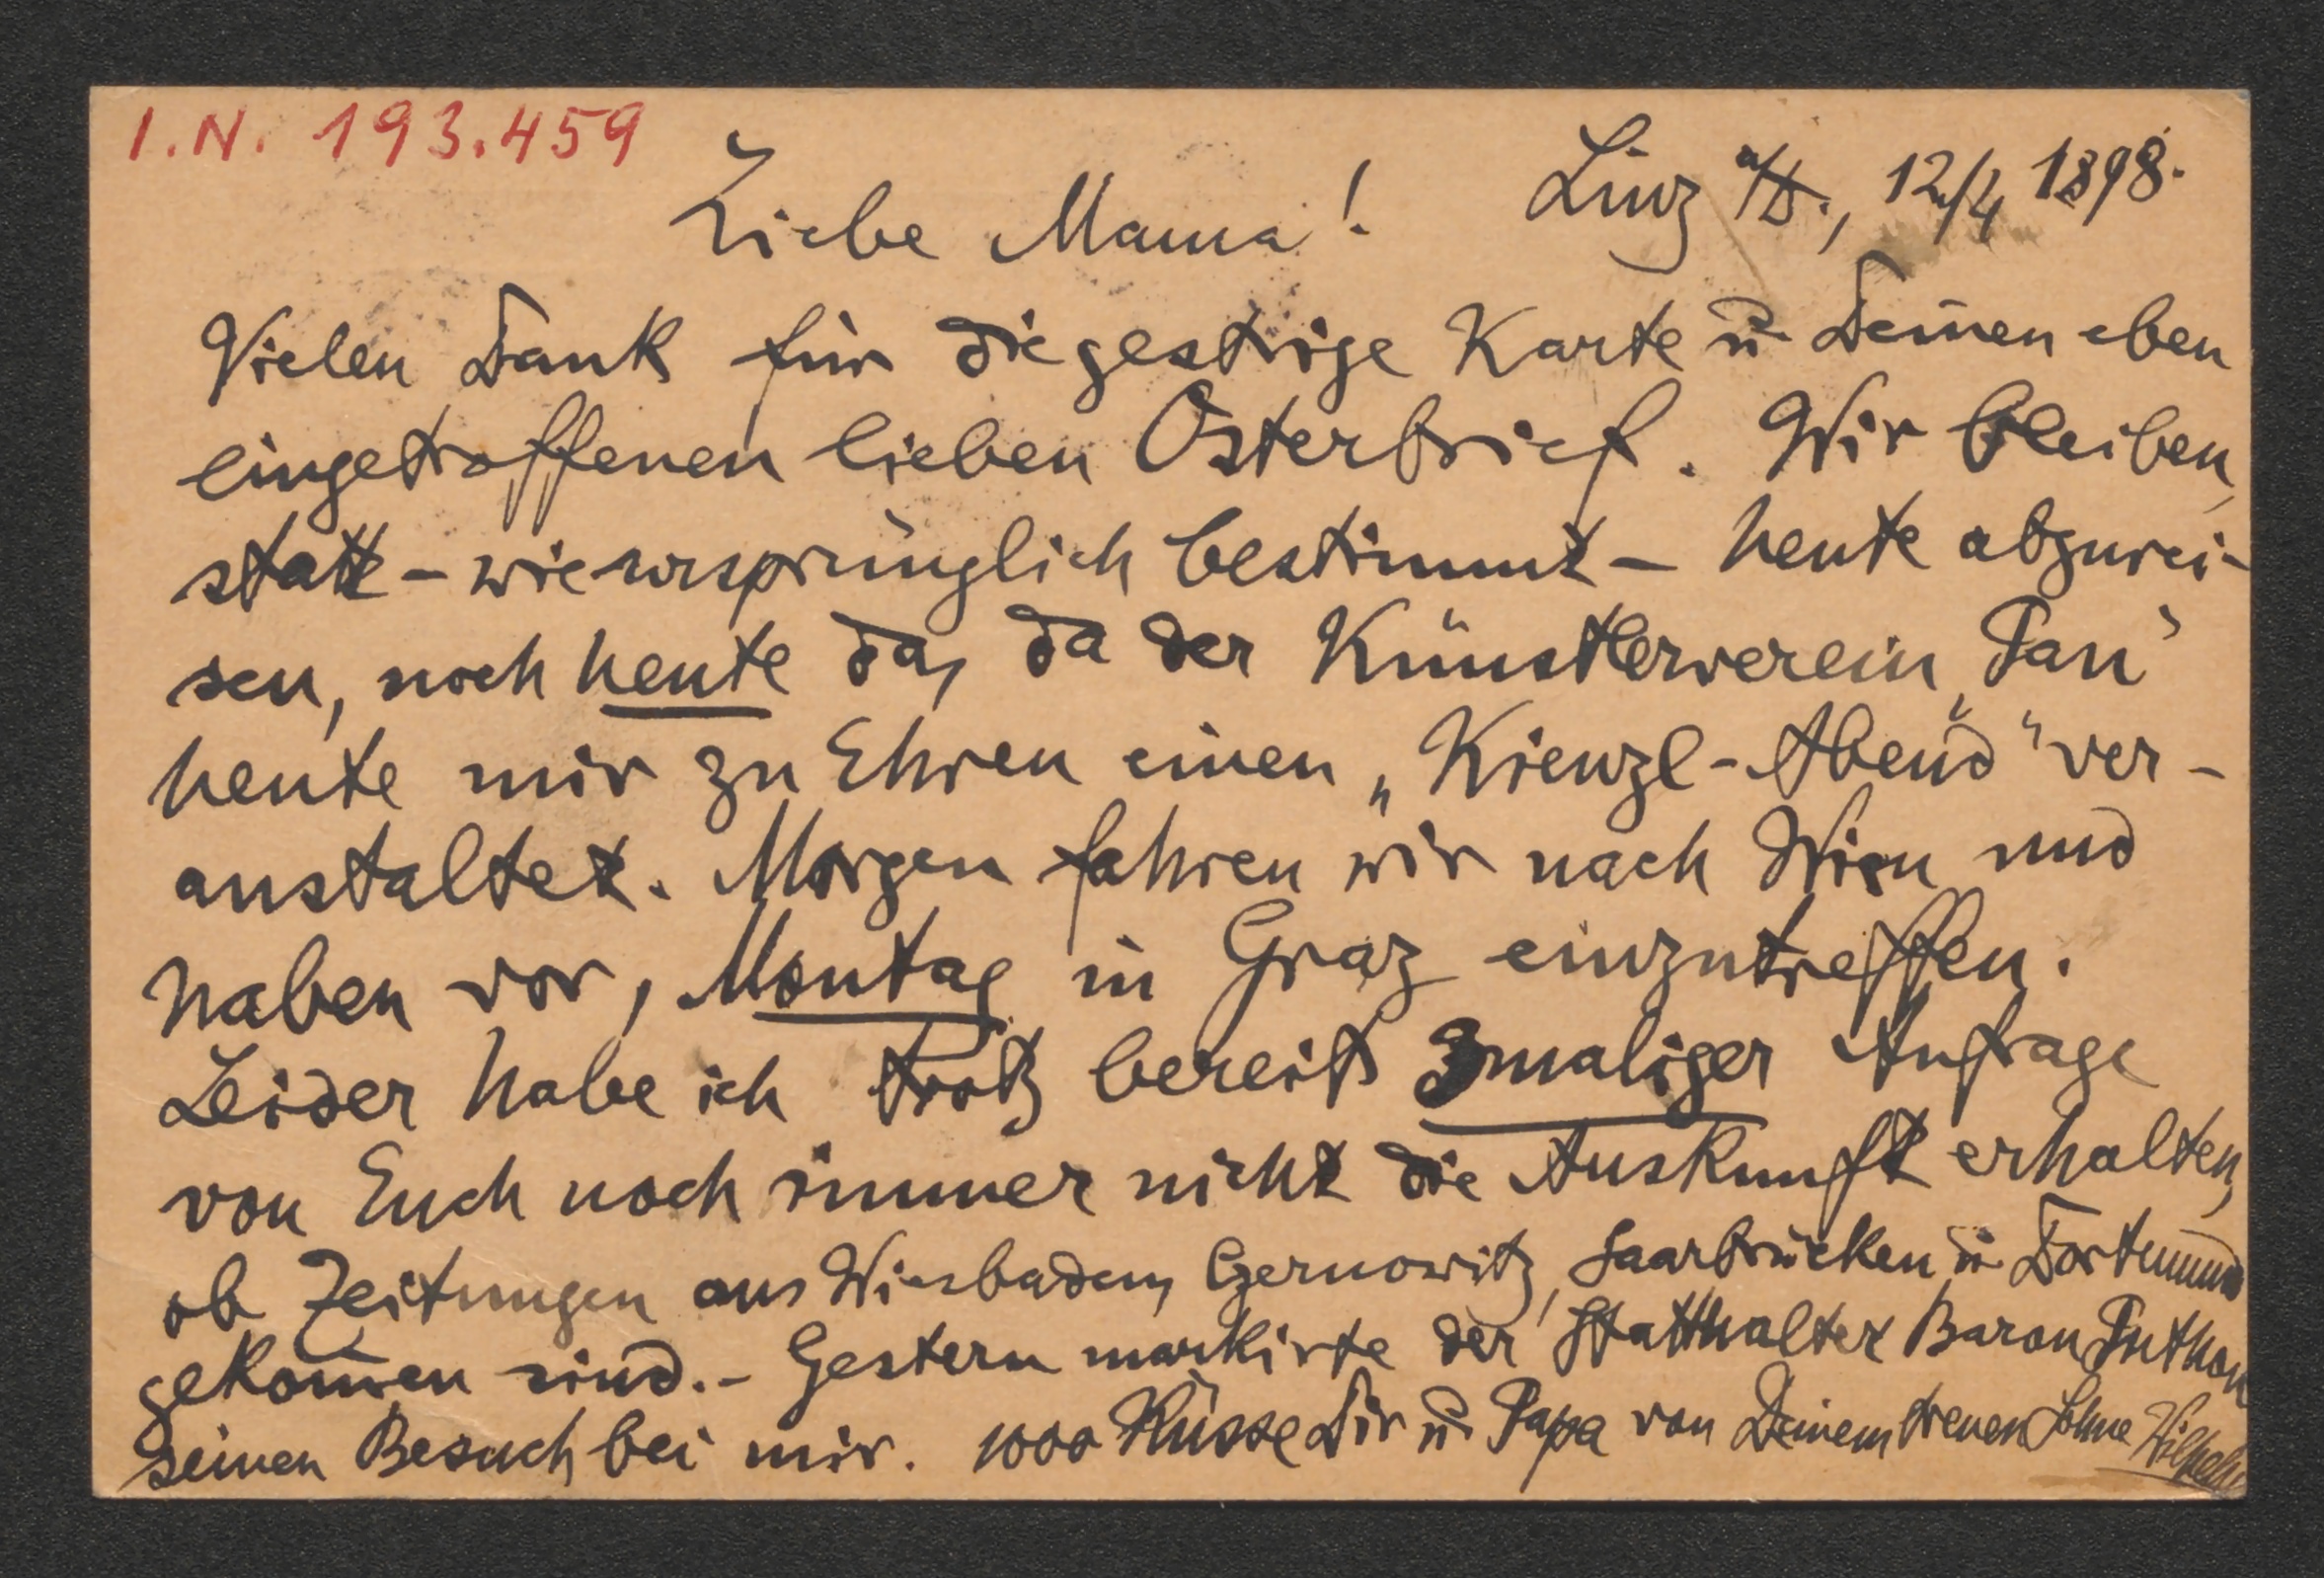 I.N. 193.459
Linz a/D., 12/4 1898.
Liebe Mama!
Vielen Dank für die gestrige Karte u. Deinen eben
eingetroffenen lieben Osterbrief. Wir bleiben,
statt – wie ursprünglich bestimmt – heute abzurei-
sen, noch heute da, da der Künstlerverein „Pan“
heute mir zu Ehren einen „Kienzl-Abend“ ver-
anstaltet. Morgen fahren wir nach Wien und
haben vor, Montag in Graz einzutreffen.
Leider habe ich trotz bereits 3maliger Anfrage
von Euch noch immer nicht die Auskunft erhalten,
ob Zeitungen aus Wiesbaden, Czernowitz, Saarbrücken u. Dortmund
gekom̄en sind. – Gestern markirte der Statthalter Baron Puthon
seinen Besuch bei mir. 1000 Küsse Dir u. Papa von Deinem treuen Sohne Wilhelm